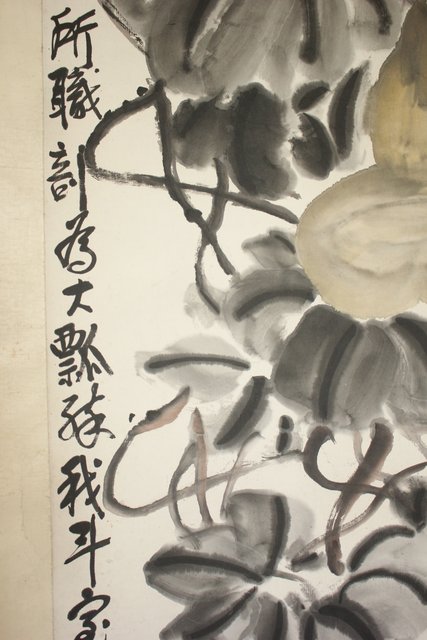 所職剖為大瓢醉我斗室